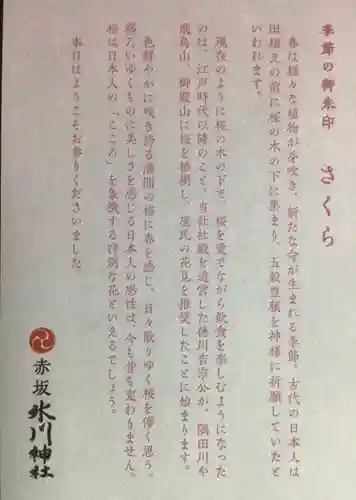 季節の御朱印 さくら
春は様々な植物が芽吹き、新たな命が生まれる季節。古代の日本人は
田植えの前に桜の木の下に集まり、五穀豊穣を神様に祈願していたと
いわれます。
現在のように桜の木の下で、桜を愛でながら飲食を楽しむようになった
のは、江戸時代以降のこと。当社社殿を造営した徳川吉宗公が、隅田川や
飛鳥山、御殿山に桜を植樹し、庶民の花見を推奨したことに始まります。
色鮮やかに咲き誇る満開の桜に春を感じ、日々散りゆく桜を儚く思う。
移ろいゆくものに美しさを感じる日本人の感性は、今も昔も変わりません。
桜は日本人の「こころ」を象徴する特別な花といえるでしょう。
本日はようこそお参りくださいました。
赤坂 氷川神社